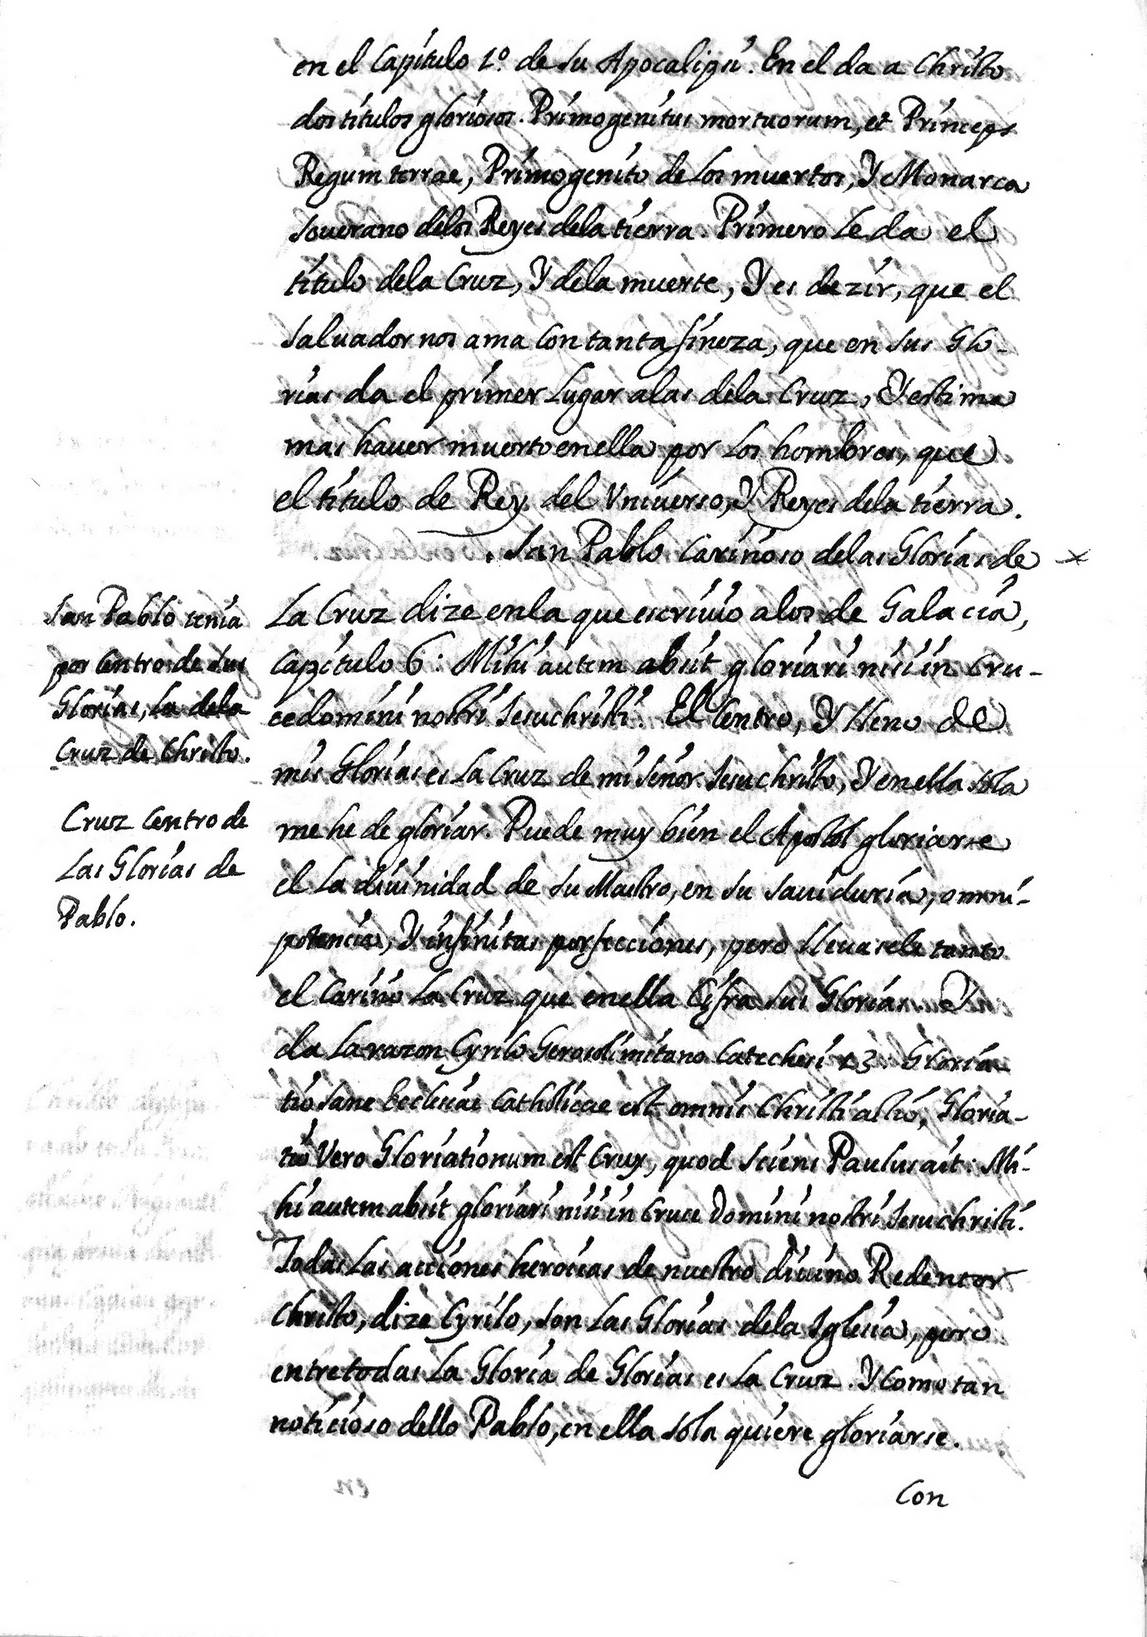 en el Capítulo 1º de su Apocalipsi. En el da a Christo
dos títulos gloriosos. Primogenitus mortuorum, et Princeps
Regum terrae, Primogenito de los muertos, Y Monarca
soverano delos Reyes dela tierra. Primero le da el
título dela Cruz, Y dela muerte, Y es dezir, que el
salvador nos ama con tanta fineza, que en sus Glo-
rias da el primer lugar alas dela Cruz, Y estima
mas haver muerto en ella por los hombres, que
el título de Rey del Vniverso, Y Reyes dela tierra.
San Pablo Cariñoso delas Glorias de
La Cruz dize enla que escrivio alos de Galacia,
Capítulo 6: Mihi autem absit gloriari nisi in Cru-
ce domini nostri Jesuchristi. El Centro, Y lleno de
mis Glorias es La Cruz de mi señor Jesuchristo, Y en ella sola
me he de gloriar. Puede muy bien el Apostol gloriarse
el La divinidad de su Maestro, en su saviduria, omni-
potencia, Y infinitas perfecciones, pero llevasele tanto
el Cariño La Cruz que enella Cifra sus Glorias. Y
da La razon Cyrilo Gerosolimitano Catechesi 13: Gloria
tio sane Ecclesiae Catholicae est omnis Christi actio, Gloria-
tio Vero Gloriationum est Crux, quod sciens Paulus ait: Mi-
hi autem absit gloriari nisi in Cruce Domini nostri Jesuchristi.
Todas Las acciones heroicas de nuestro divino Redentor
Christo, dize Cyrilo, son Las Glorias dela Iglesia, pero
entre todas La Gloria de Glorias es La Cruz. Y Como tan
noticioso dello Pablo, en ella sola quiere gloriarse.
Con
San Pablo tenia
por Centro de sus
Glorias, la dela
Cruz de Christo.
Cruz Centro de
Las Glorias de
Pablo.